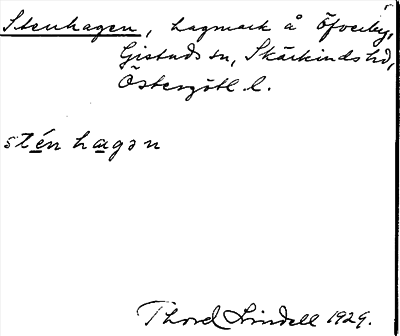 Stenhagen, hagmark å Öfverby,
Gistads sn, Skärkinds hd,
Östergötl. l.
stén hagən
Thord Lindell 1929.